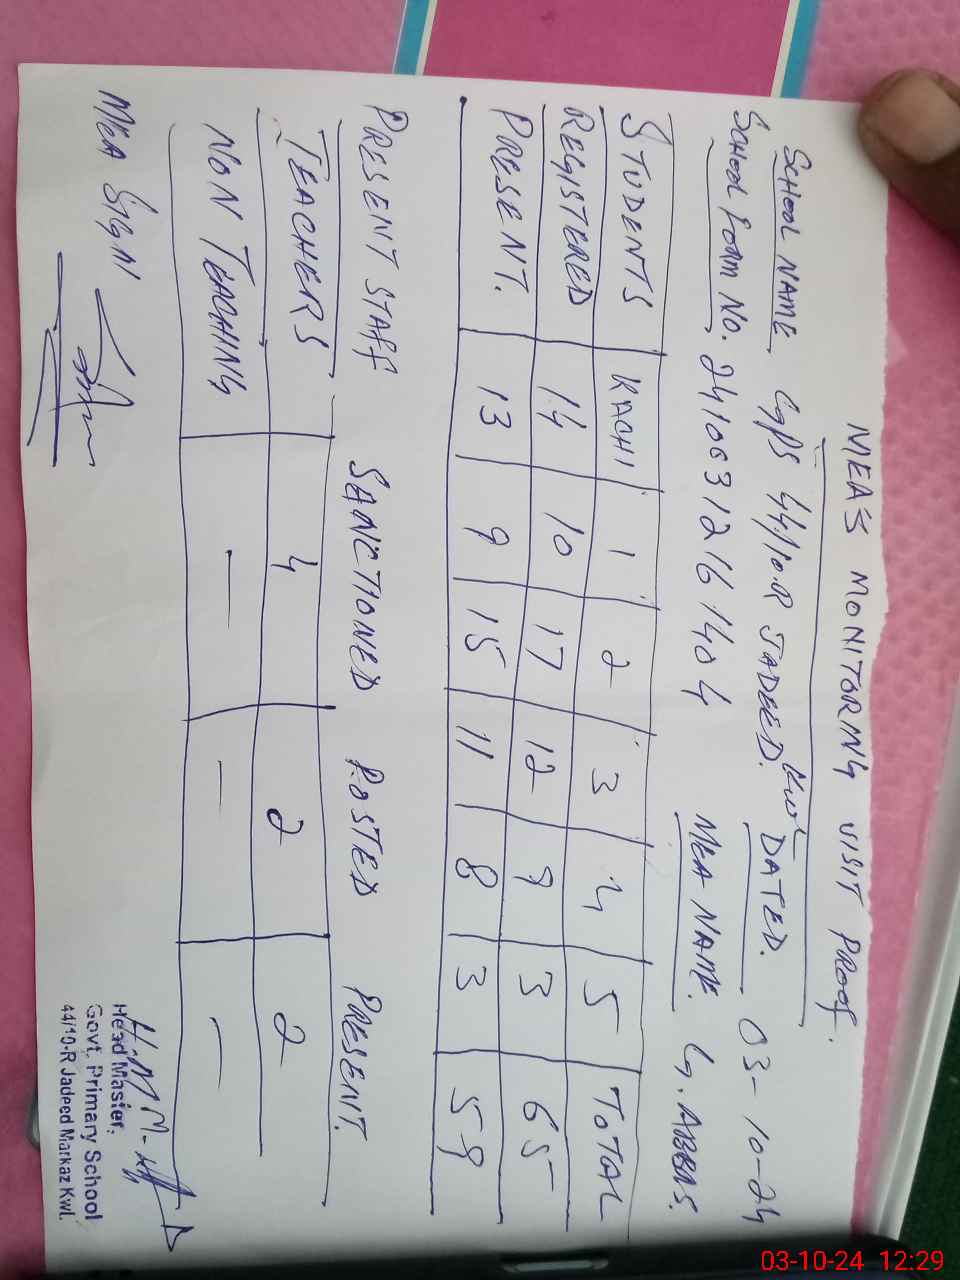 MEA'S MONITORING VISIT PROOF.
SCHOOL NAME. GGPS 44/10.R JADEED. KWL DATED. 03-10-24
SCHOOL FORM NO. 2410631216 1404 MEA NAME. G. ABBAS.
STUDENTS KACHI 1 2 3 4 5 TOTAL
REGISTERED 14 10 17 12 9 3 65
PRESENT. 13 9 15 11 8 3 59
PRESENT STAFF SANCTIONED POSTED PRESENT.
TEACHERS 4 2 2
NON TEACHING — — —
MEA Sign
Head Master,
Govt. Primary School
44/10-R Jadeed Markaz Kwl.
03-10-24 12:29